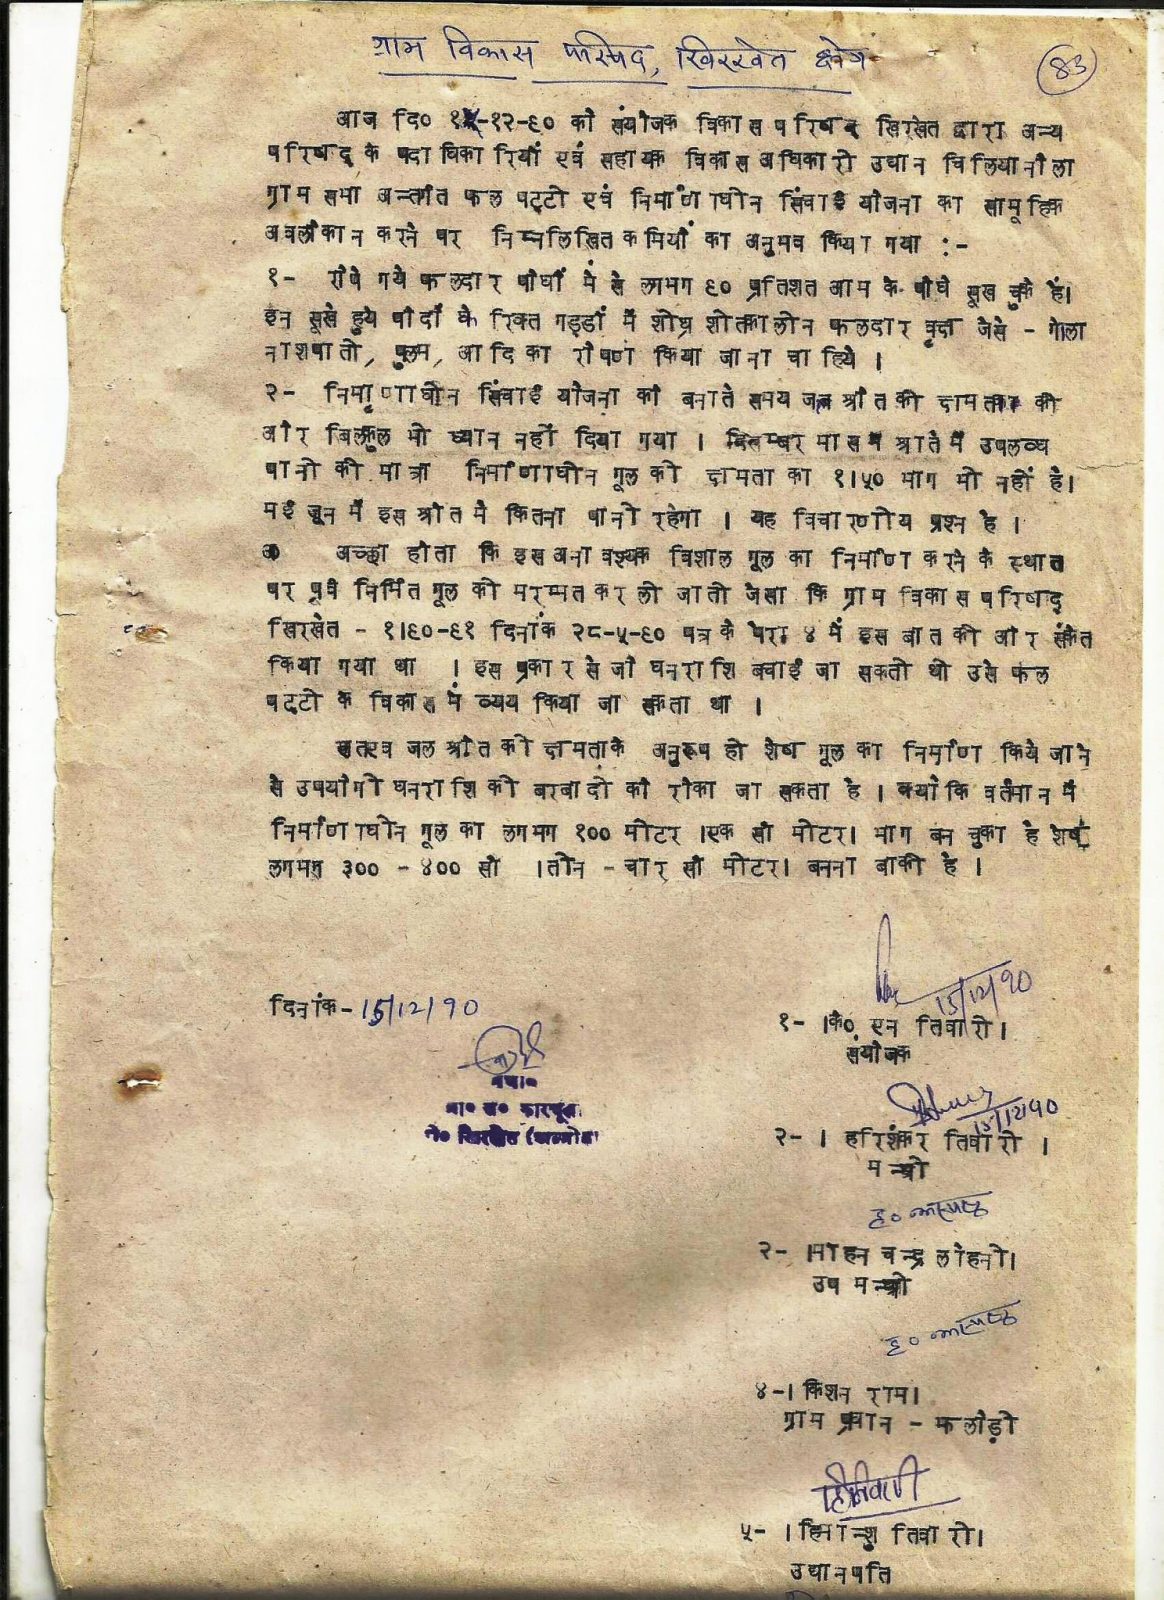 ग्राम विकास परिषद, खिरखेत क्षेत्र
83
आज दि० १५-१२-९० को संयोजक विकास परिषद् खिरखेत द्वारा अन्य
परिषद् के पदाधिकारियों एवं सहायक विकास अधिकारी उद्यान चिलियानौला
ग्राम सभा अन्तर्गत फल पट्टी एवं निर्माणाधीन सिंचाई योजना का सामूहिक
अवलोकन करने पर निम्नलिखित कमियों का अनुभव किया गया :-
१- रोपे गये फलदार पौधों में से लगभग ९० प्रतिशत आम के पौधे सूख चुके हैं।
इन सूखे हुये पौदों के रिक्त गड्डों में शीघ्र शीतकालीन फलदार वृक्ष जैसे - गोला
नाशपाती, पुलम, आदि का रोपण किया जाना चाहिये ।
२- निर्माणाधीन सिंचाई योजना को बनाते समय जल श्रोत की क्षमता की
ओर बिल्कुल भी ध्यान नहीं दिया गया । दिसम्बर मास में श्रोत में उपलब्ध
पानी की मात्रा निर्माणाधीन गूल की क्षमता का १।५० भाग भी नहीं है।
मई जून में इस श्रोत में कितना पानी रहेगा । यह विचारणीय प्रश्न है ।
अच्छा होता कि इस अनावश्यक विशाल गूल का निर्माण करने के स्थान
पर पूर्व निर्मित गूल की मरम्मत कर ली जाती जैसा कि ग्राम विकास परिषद्
खिरखेत - १।९०-९१ दिनांक २८-५-९० पत्र के पैरा ४ में इस बात की ओर संकेत
किया गया था । इस प्रकार से जो धनराशि बचाई जा सकती थी उसे फल
पट्टी के विकास में व्यय किया जा सकता था ।
अतएव जल श्रोत की क्षमता के अनुरूप ही शेष गूल का निर्माण किये जाने
से उपयोगी धनराशि की बरबादी को रोका जा सकता है । क्योंकि वर्तमान में
निर्माणाधीन गूल का लगभग १०० मीटर ।एक सौ मीटर। भाग बन चुका है शेष
लगभग ३०० - ४०० सौ ।तीन - चार सौ मीटर। बनना बाकी है ।
15/12/90
दिनांक- 15/12/90
१- ।के० एन तिवारी।
संयोजक
15/12/90
२- । हरिशंकर तिवारी ।
मन्त्री
ह० अस्पष्ट
२- ।मोहन चन्द्र लोहनी।
उप मन्त्री
ह० अस्पष्ट
४-। किशन राम।
ग्राम प्रधान - कलौड़ी
५- । हिमांन्शु तिवारी।
उद्यानपति